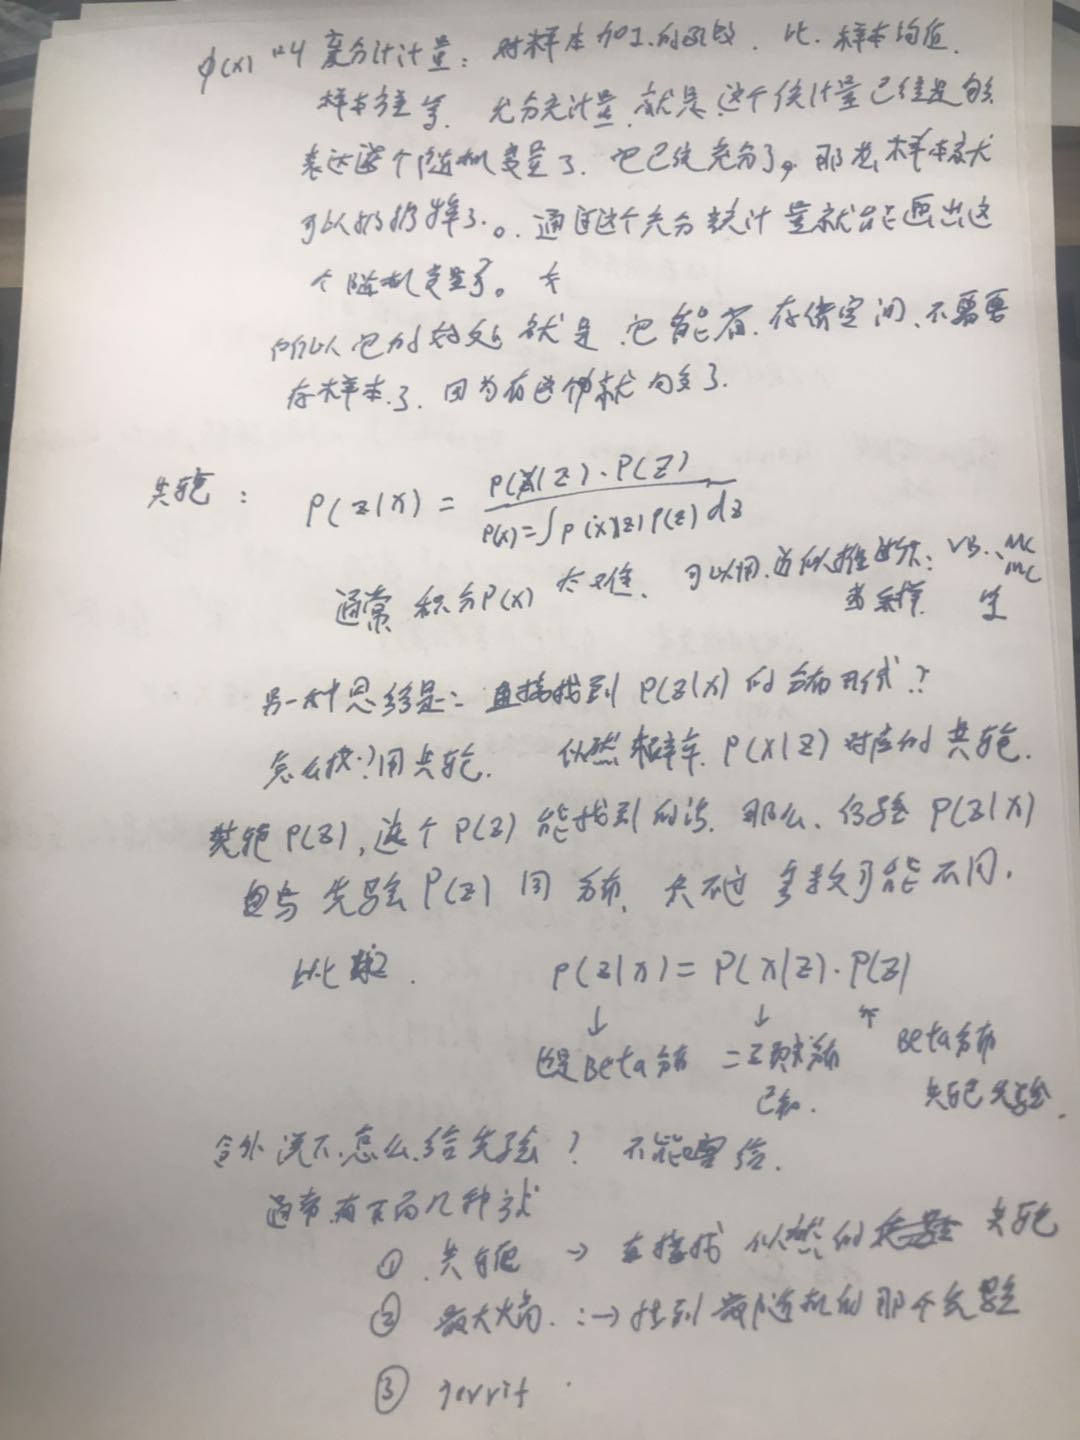 φ(x) 叫充分统计量：对样本加工的函数．比．样本均值．
样本方差等．充分统计量．就是．这个统计量已经是够
表达这个随机变量了．它已经充分了，那么样本就
可以扔掉了。．通过这个充分统计量就能画出这
个随机变量了。
所以它的好处就是．它能省．存储空间、不需要
存样本．了．因为有这个就够了．
共轭： P(z|x) = P(x|z)·P(z)
P(x)=∫P(x|z)P(z)dz
通常积分P(x)太难、可以用．近似推断: VB.、MC
或采样． MC
另一种思络是：直接找到 P(z|x) 的分布形式？
怎么找？用共轭． 似然概率．P(x|z) 对应的共轭．
P(z)，这个P(z) 能找到的话．那么、后验 P(z|x)
与先验P(z) 同分布．只不过参数可能不同．
比如． P(z|x) = P(x|z)·P(z)
↓ ↓ ↑
Beta分布 = 二项式分布 Beta分布
已知． 共轭先验．
另外说下．怎么．给先验？ 不能瞎给．
通常有下面几种方式
① 共轭 → 直接找似然的 共轭
② 最大熵．:→ 找到最随机的那个先验
③ Jerrif